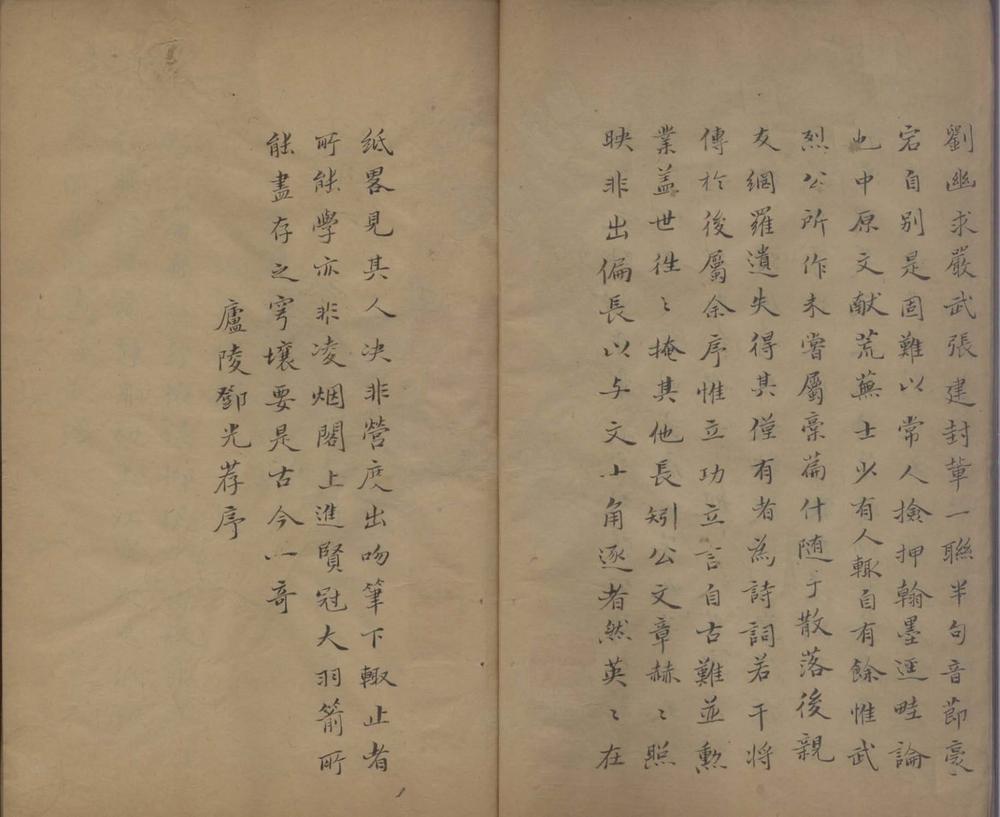 劉幽求嚴武張建封輩一聯半句音節豪
宕自别是固難以常人撿押翰墨逕畦論
也中原文献荒蕪士少有人輒自有餘惟武
烈公所作未嘗屬稾篇什随手散落後親
友網羅遺失得其僅有者為詩詞若干将
傳於後屬余序惟立功立言自古難並勲
業盖世徃〻掩其他長矧公文章赫〻照
映非出偏長以与文士角逐者然英〻在
紙畧見其人决非營度出吻筆下輙止者
所能學亦非凌烟閣上進賢冠大羽箭所
能盡存之穹壤要是古今一奇
廬陵鄧光荐序